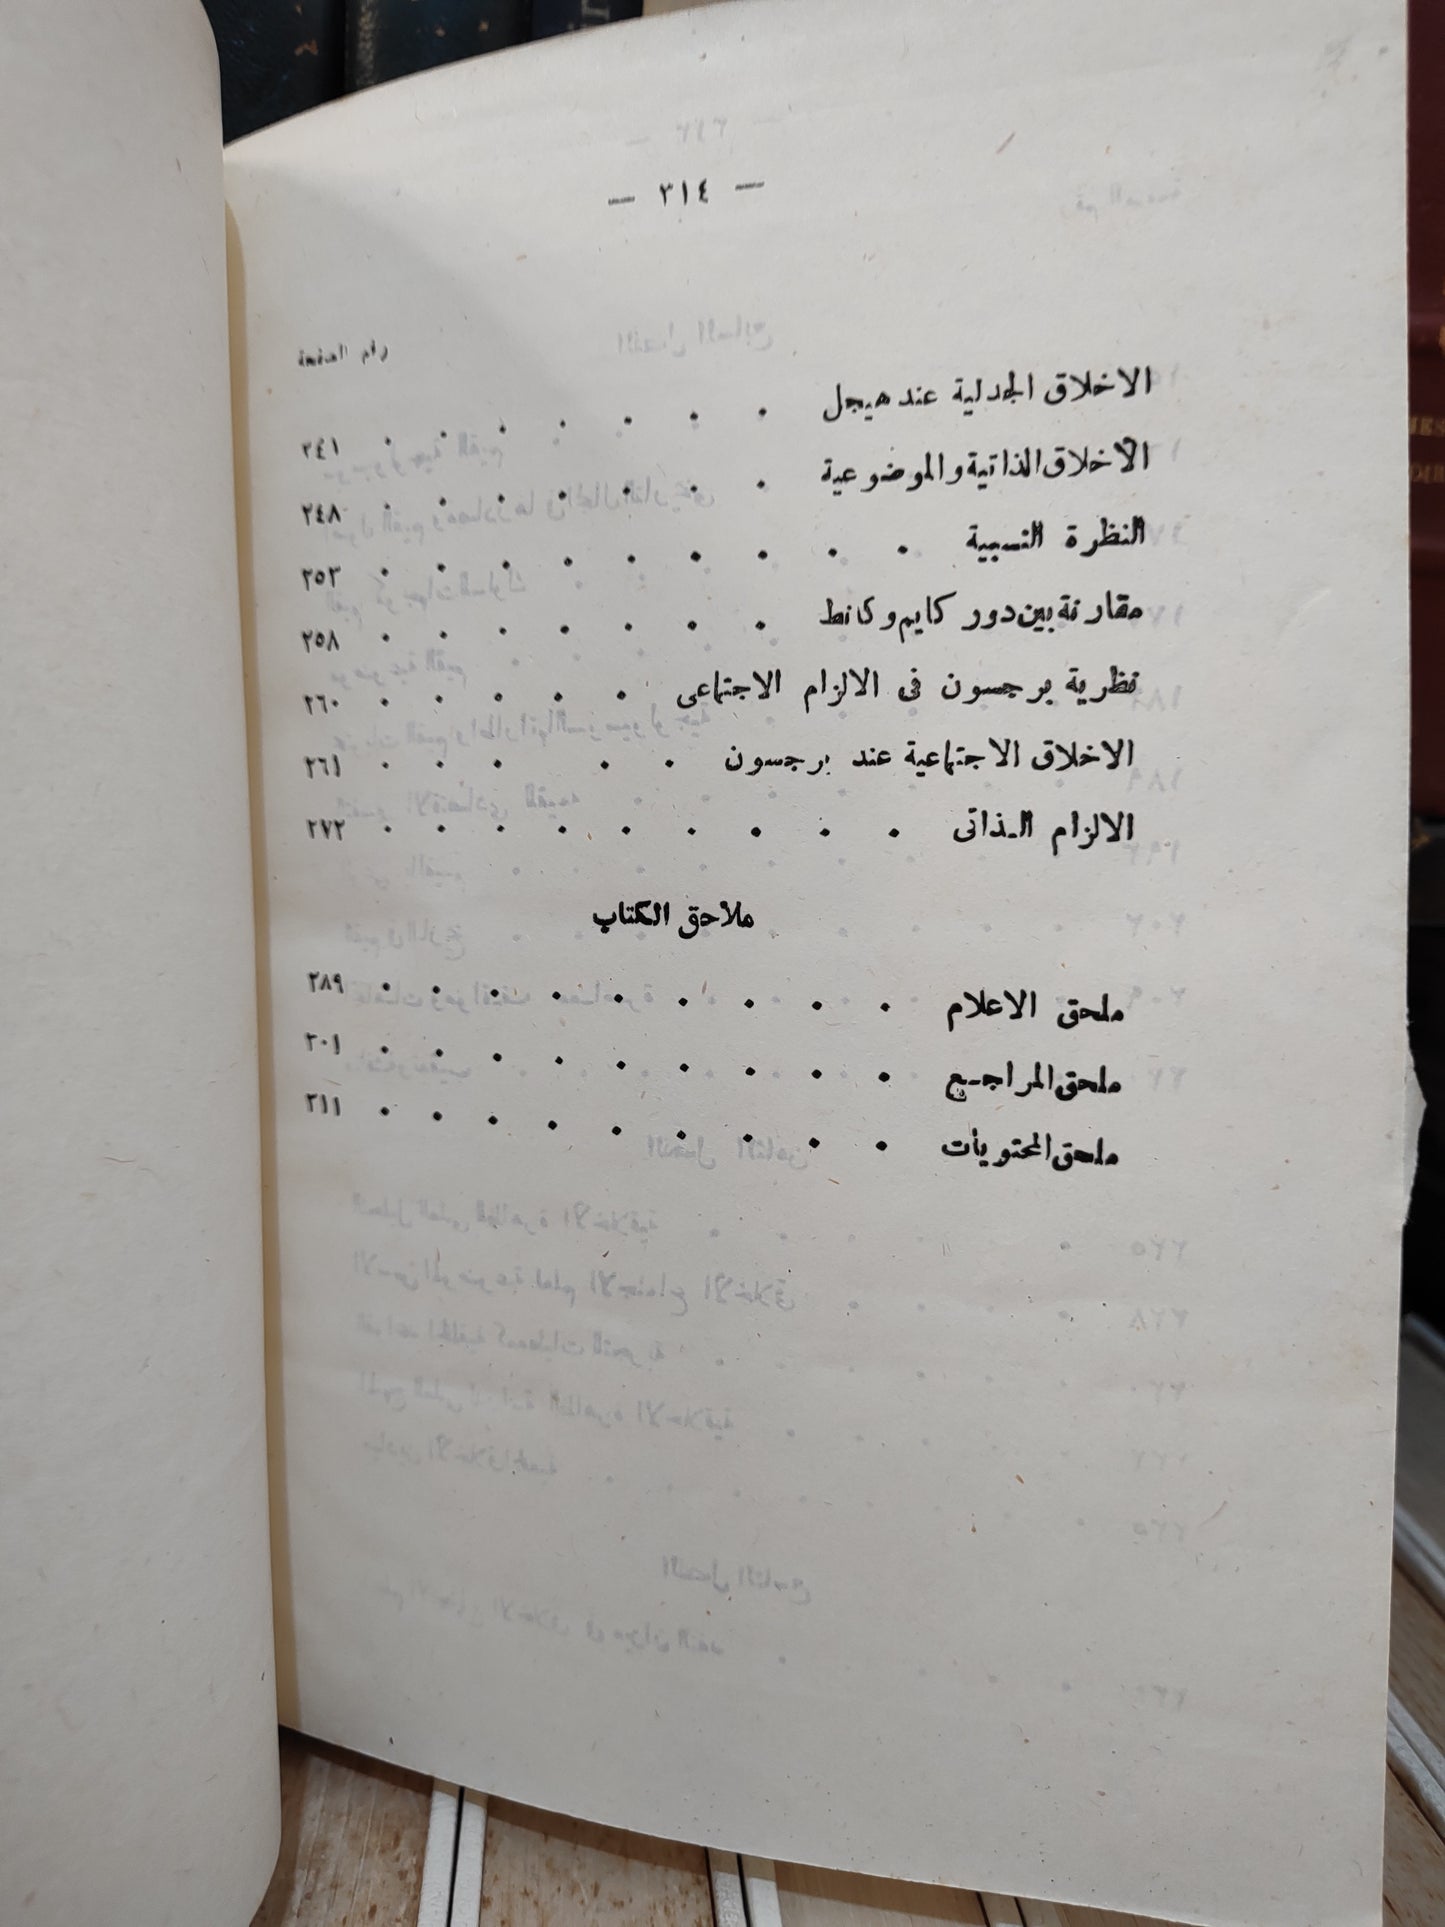 — ٣١٤ —
رقم الصفحة
الاخلاق الجدلية عند هيجل . . . . . . . ٢٤١
الاخلاق الذاتية والموضوعية . . . . . . . ٢٤٨
النظرة النسبية . . . . . . . . . ٢٥٣
مقارنة بين دور كايم وكانط . . . . . . . ٢٥٨
نظرية برجسون فى الالزام الاجتماعى . . . . . ٢٦٠
الاخلاق الاجتماعية عند برجسون . . . . . ٢٦١
الالزام الـذاتى . . . . . . . . . ٢٧٢
ملاحق الكتاب
ملحق الاعلام . . . . . . . . . ٢٨٩
ملحق المراجـع . . . . . . . . . ٣٠١
ملحق المحتويات . . . . . . . . . ٣١١